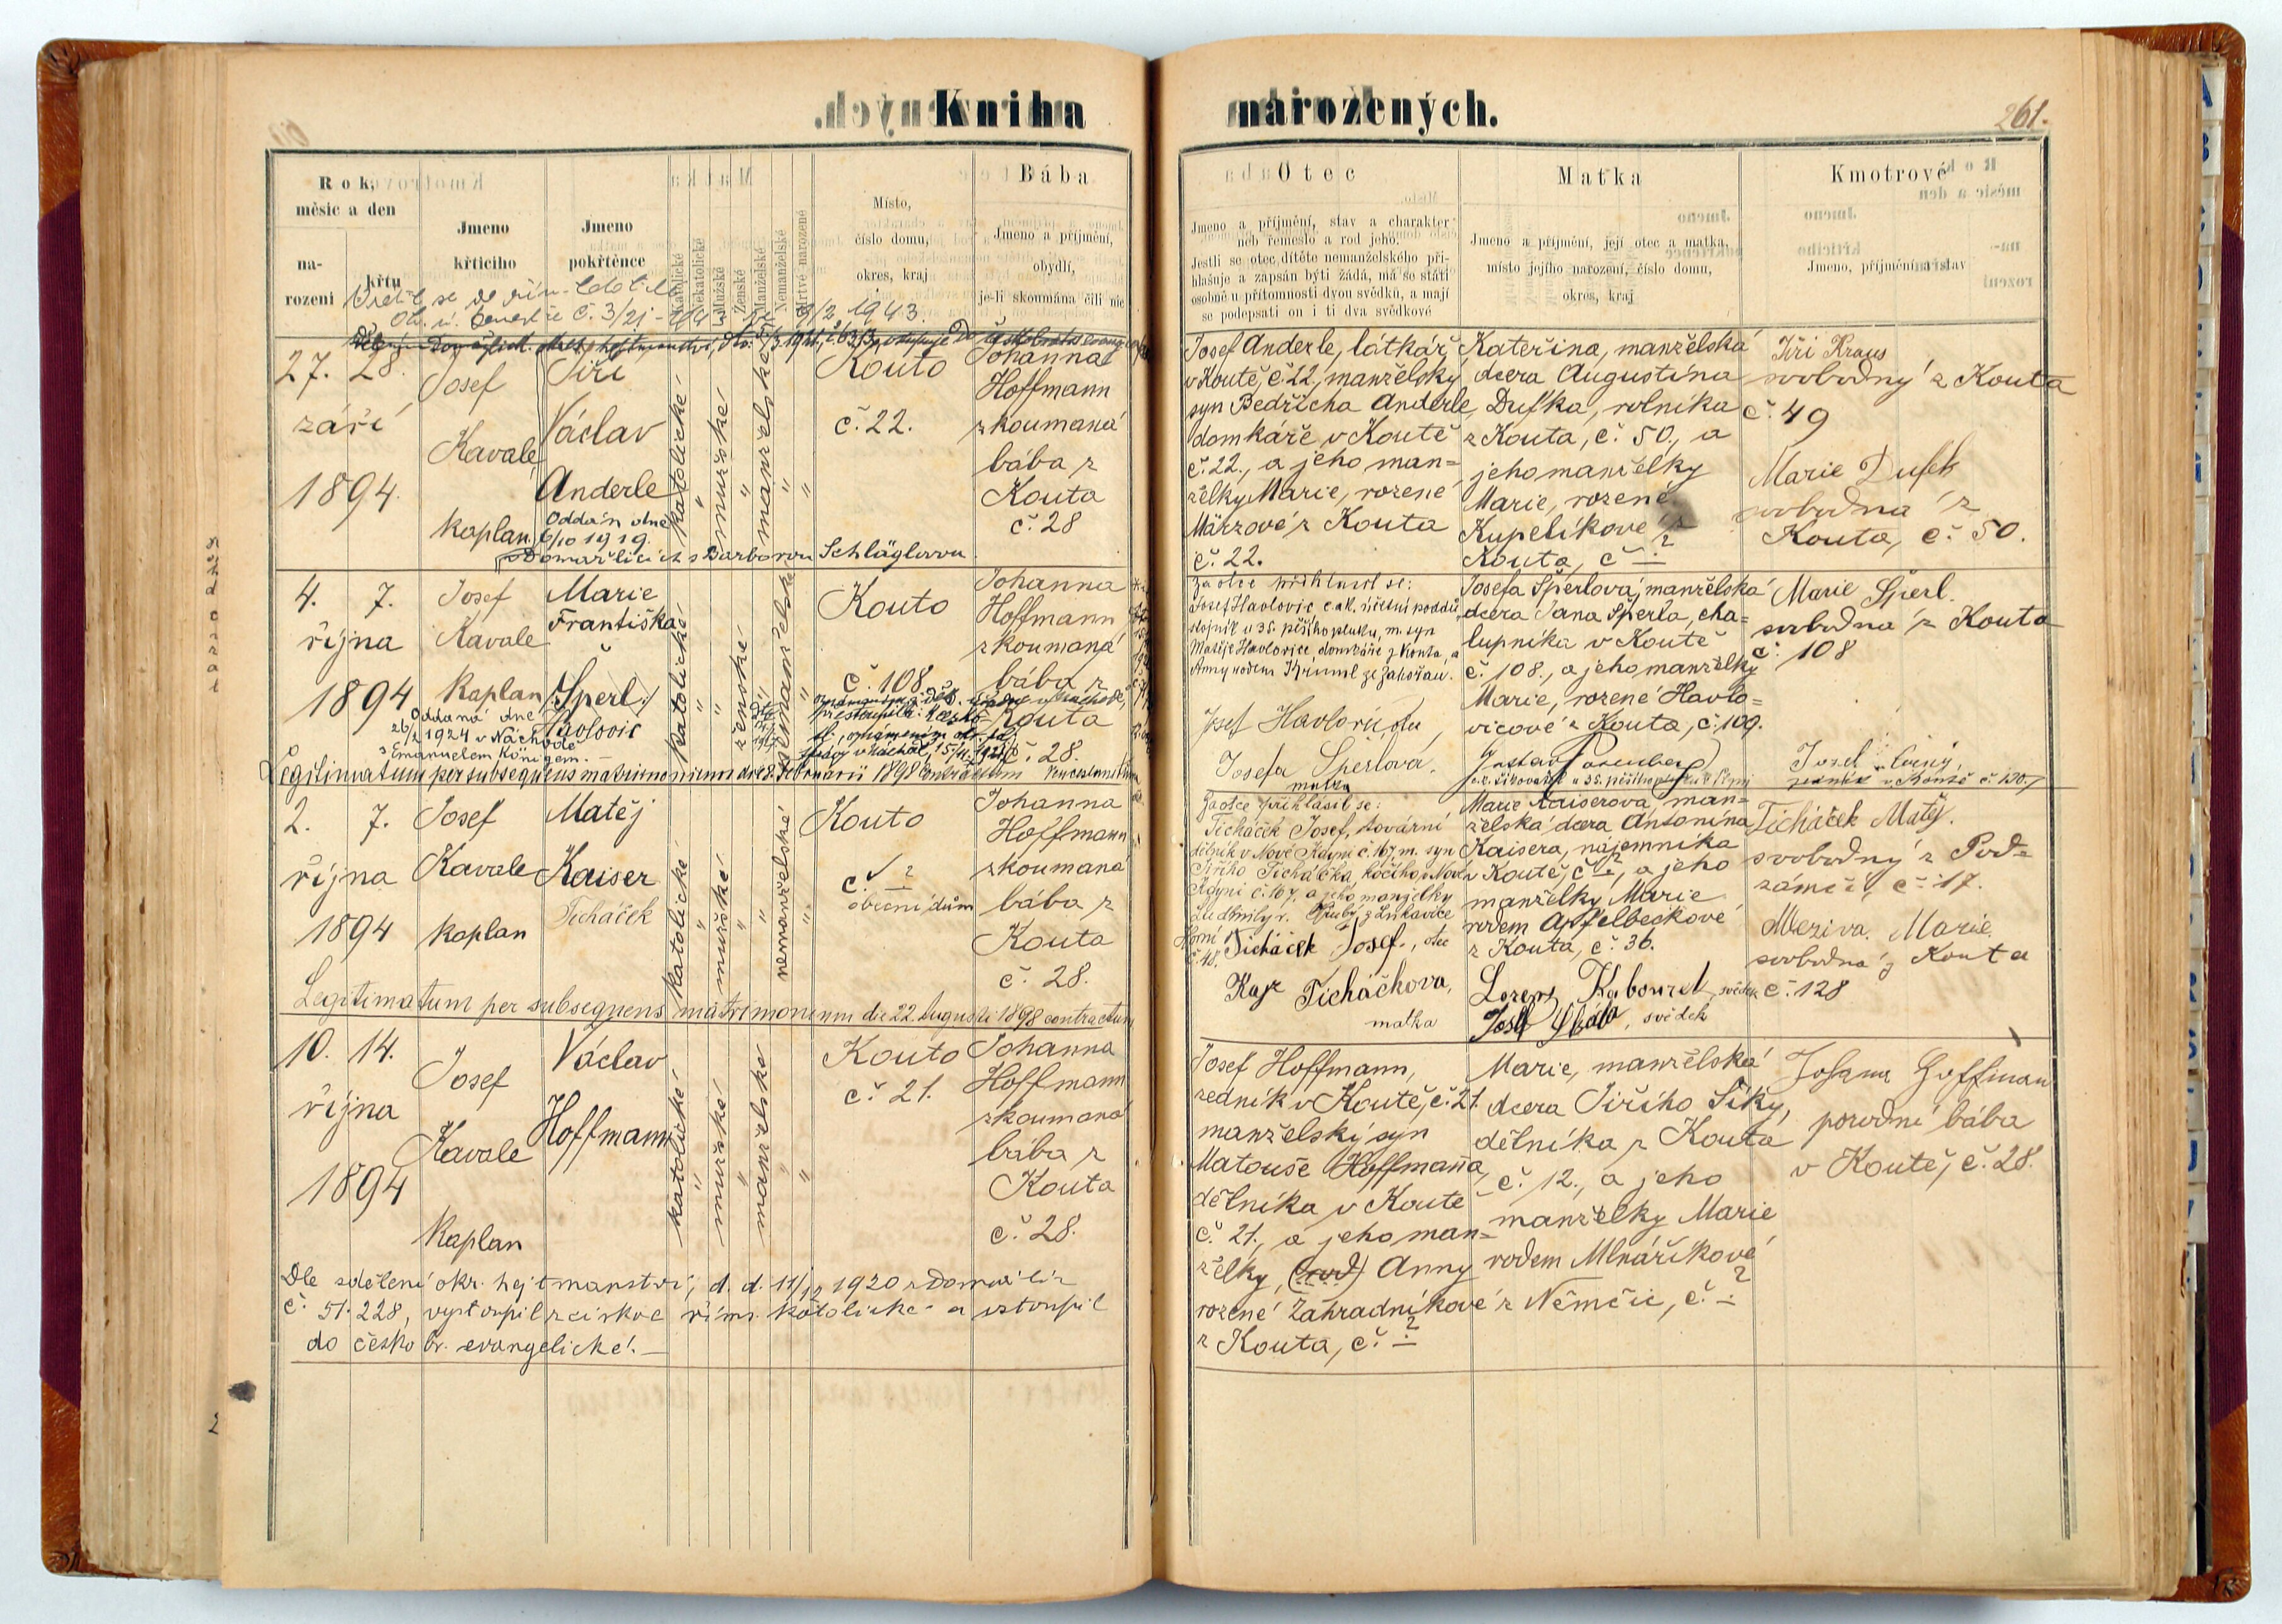 Kniha
narozených.
261.
Rok,
měsíc a den
na-
rození
křtu
Jmeno
křticího
Jmeno
pokřtěnce
Katolické
Nekatolické
Mužské
Ženské
Manželské
Nemanželské
Mrtvě narozené
Místo,
číslo domu,
okres, kraj
Bába
Jmeno a příjmění,
obydlí,
je-li skoumána čili nic
Otec
Jmeno a příjmění, stav a charakter
neb řemeslo a rod jeho.
Jestli se otec dítěte nemanželského při-
hlašuje a zapsán býti žádá, má se státi
osobně u přítomnosti dvou svědků, a mají
se podepsati on i ti dva svědkové
Matka
Jmeno a příjmění, její otec a matka,
místo jejího narození, číslo domu,
okres, kraj
Kmotrové
Jmeno, příjmění a stav
č. 3/21
9/2 1943.
27. 28.
září
1894.
Josef
Kavale
kaplan
Jiří
Václav
Anderle
Oddán dne
6/10 1919.
v Domažlicích s Barborou Schläglovou.
katolické
mužské
manželské
Kouto
č. 22.
Johanna
Hoffmann
zkoumaná
bába z
Kouta
č. 28
Josef Anderle, látkář
v Koutě, č. 22, manželský
syn Bedřicha Anderle,
domkáře v Koutě
č. 22., a jeho man=
želky Marie, rozené
Märzové z Kouta
č. 22.
Kateřina, manželská
dcera Augustina
Dufka, rolníka
z Kouta, č. 50., a
jeho manželky
Marie, rozené
Kupelíkové z
Kouta, č. ?
Jiří Kraus
svobodný z Kouta
č. 49
Marie Dufek
svobodná z
Kouta, č. 50.
4. 7.
října
1894
Josef
Kavale
Kaplan
Marie
Františka
Šperl
Havlovic
Oddaná dne
26/2 1924 v Náchodě
s Emanuelem Königem.
katolické
ženské
nemanželské
Kouto
č. 108.
Johanna
Hoffmann
zkoumaná
bába z
Kouta
č. 28.
Legitimatum per subsequens matrimonium die 8. februarii 1898 contractum
Za otce přihlásil se:
Josef Havlovic c. a k. účetní poddů-
stojník u 35. pěšího pluku, m. syn
Matěje Havlovice, domkáře z Kouta, a
Anny rodem Krüml ze Zahořan.
Josef Havlovic, otec
Josefa Šperlová,
matka
Josefa Šperlová, manželská
dcera Jana Šperla, cha=
lupníka v Koutě
č. 108., a jeho manželky
Marie, rozené Havlo=
vicové z Kouta, č. 109.
Marie Šperl
svobodná z Kouta
č. 108
2. 7.
října
1894
Josef
Kavale
kaplan
Matěj
Kaiser
Ticháček
katolické
mužské
nemanželské
Kouto
č. ?
obecní dům
Johanna
Hoffmann
zkoumaná
bába z
Kouta
č. 28.
Legitimatum per subsequens matrimonium die 22. Augusti 1898 contractum
Za otce přihlásil se:
Ticháček Josef, tovární
dělník v Nové Kdyni č. 167, m. syn
Jiřího Ticháčka, kočího v Nové
Kdyni č. 167, a jeho manželky
Ludmily r. Hrubý z Lukavice
Horní
č. 48.
Ticháček Josef, otec
Ticháčkova,
matka
Marie Kaiserova, man=
želská dcera Antonína
Kaisera, nájemníka
v Koutě, č. ?, a jeho
manželky Marie
rodem Apfelbeckové
z Kouta, č. 36.
svědek
svědek
Ticháček Matěj.
svobodný z Pod=
zámčí, č. 17.
Meziva Marie
svobodná z Kouta
č. 128
10. 14.
října
1894
Josef
Kavale
Kaplan
Václav
Hoffmann
katolické
mužské
manželské
Kouto
č. 21.
Johanna
Hoffmann
zkoumaná
bába z
Kouta
č. 28.
Josef Hoffmann,
zedník v Koutě, č. 21.
manželský syn
Matouše Hoffmanna,
dělníka v Koutě
č. 21., a jeho man=
želky, (rod) Anny
rozené Zahradníkové
z Kouta, č. ?
Marie, manželská
dcera Jiřího Síky,
dělníka z Kouta
č. 12., a jeho
manželky Marie
rodem Mlnaříkové
z Němčic, č. ?
Johanna Hoffman
porodní bába
v Koutě, č. 28.
Dle sdělení okr. hejtmanství, d. d. 11/12 1920 z Domažlic
č. 51.228, vystoupil z církve řím. katolické a vstoupil
do česko br. evangelické.